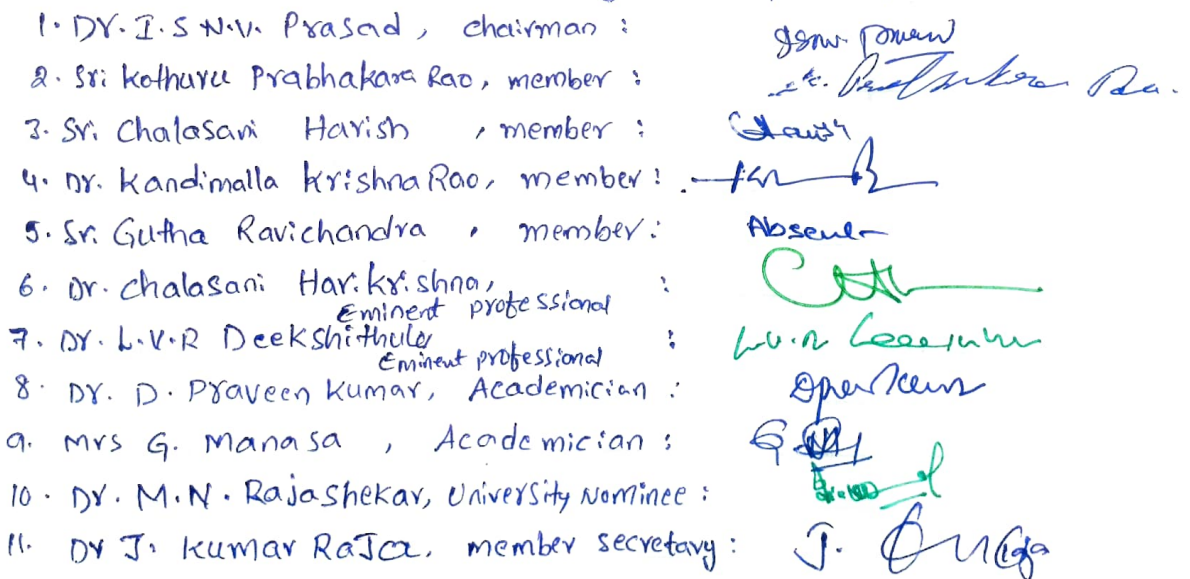 1. DY. I. S N.V. Prasad, chairman :
2. Sri Kothuru Prabhakara Rao, member :
3. Sri Chalasani Harish , member :
4. Dr. Kandimalla Krishna Rao, member :
5. Sri Gutha Ravichandra , member : Absent
6. Dr. Chalasani Harikrishna, :
Eminent professional
7. DY. L.V.R Deekshithulu :
Eminent professional
8. DY. D. Praveen Kumar, Academician :
9. Mrs G. Manasa , Academician :
10. DY. M.N. Rajashekar, University Nominee :
11. DY J. Kumar RaJa, member secretary : J.